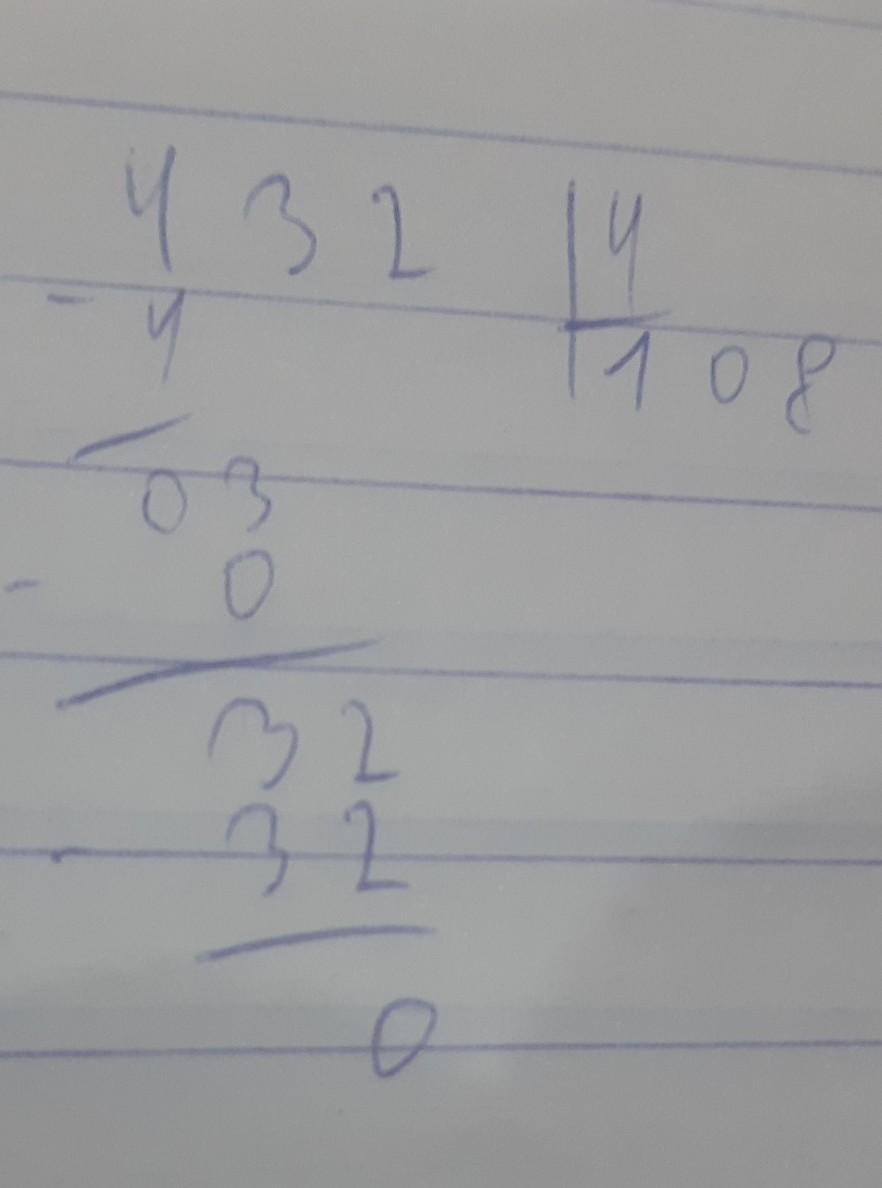 432 |4
- 4 |108
03
- 0
32
- 32
0